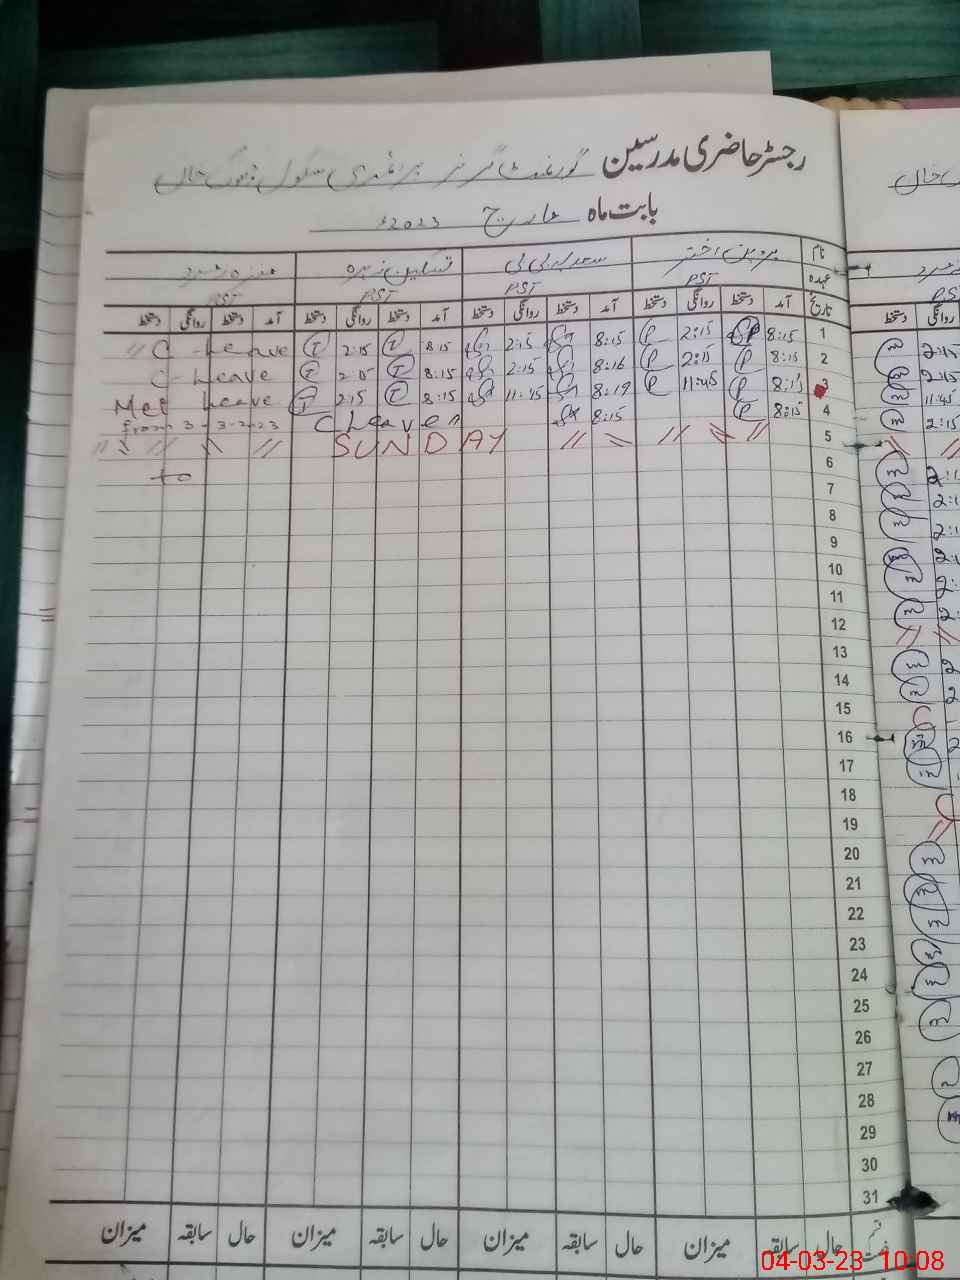 رجسٹر حاضری مدرسین گورنمنٹ گرلز پرائمری سکول
بابت ماہ مارچ 2023ء
نام پروین اختر سعدیہ بی بی تسلیم زہرہ
عہدہ PST PST PST PST
تاریخ آمد دستخط روانگی دستخط آمد دستخط روانگی دستخط آمد دستخط روانگی دستخط آمد دستخط روانگی دستخط
1 8:15 P 2:15 P 8:15 2:15 8:15 T 2:15 T C-Leave
2 8:15 P 2:15 P 8:16 2:15 8:15 T 2:15 T C-Leave
3 8:15 P 11:45 P 8:19 11:45 8:15 T 2:15 T Met Leave
4 8:15 P 8:15 C Leave from 3-3-2023
5 SUNDAY
6 to
7
8
9
10
11
12
13
14
15
16
17
18
19
20
21
22
23
24
25
26
27
28
29
30
31
حال سابقہ میزان حال سابقہ میزان حال سابقہ میزان حال سابقہ میزان
2:15
2:15
11:45
2:15
04-03-23 10:08